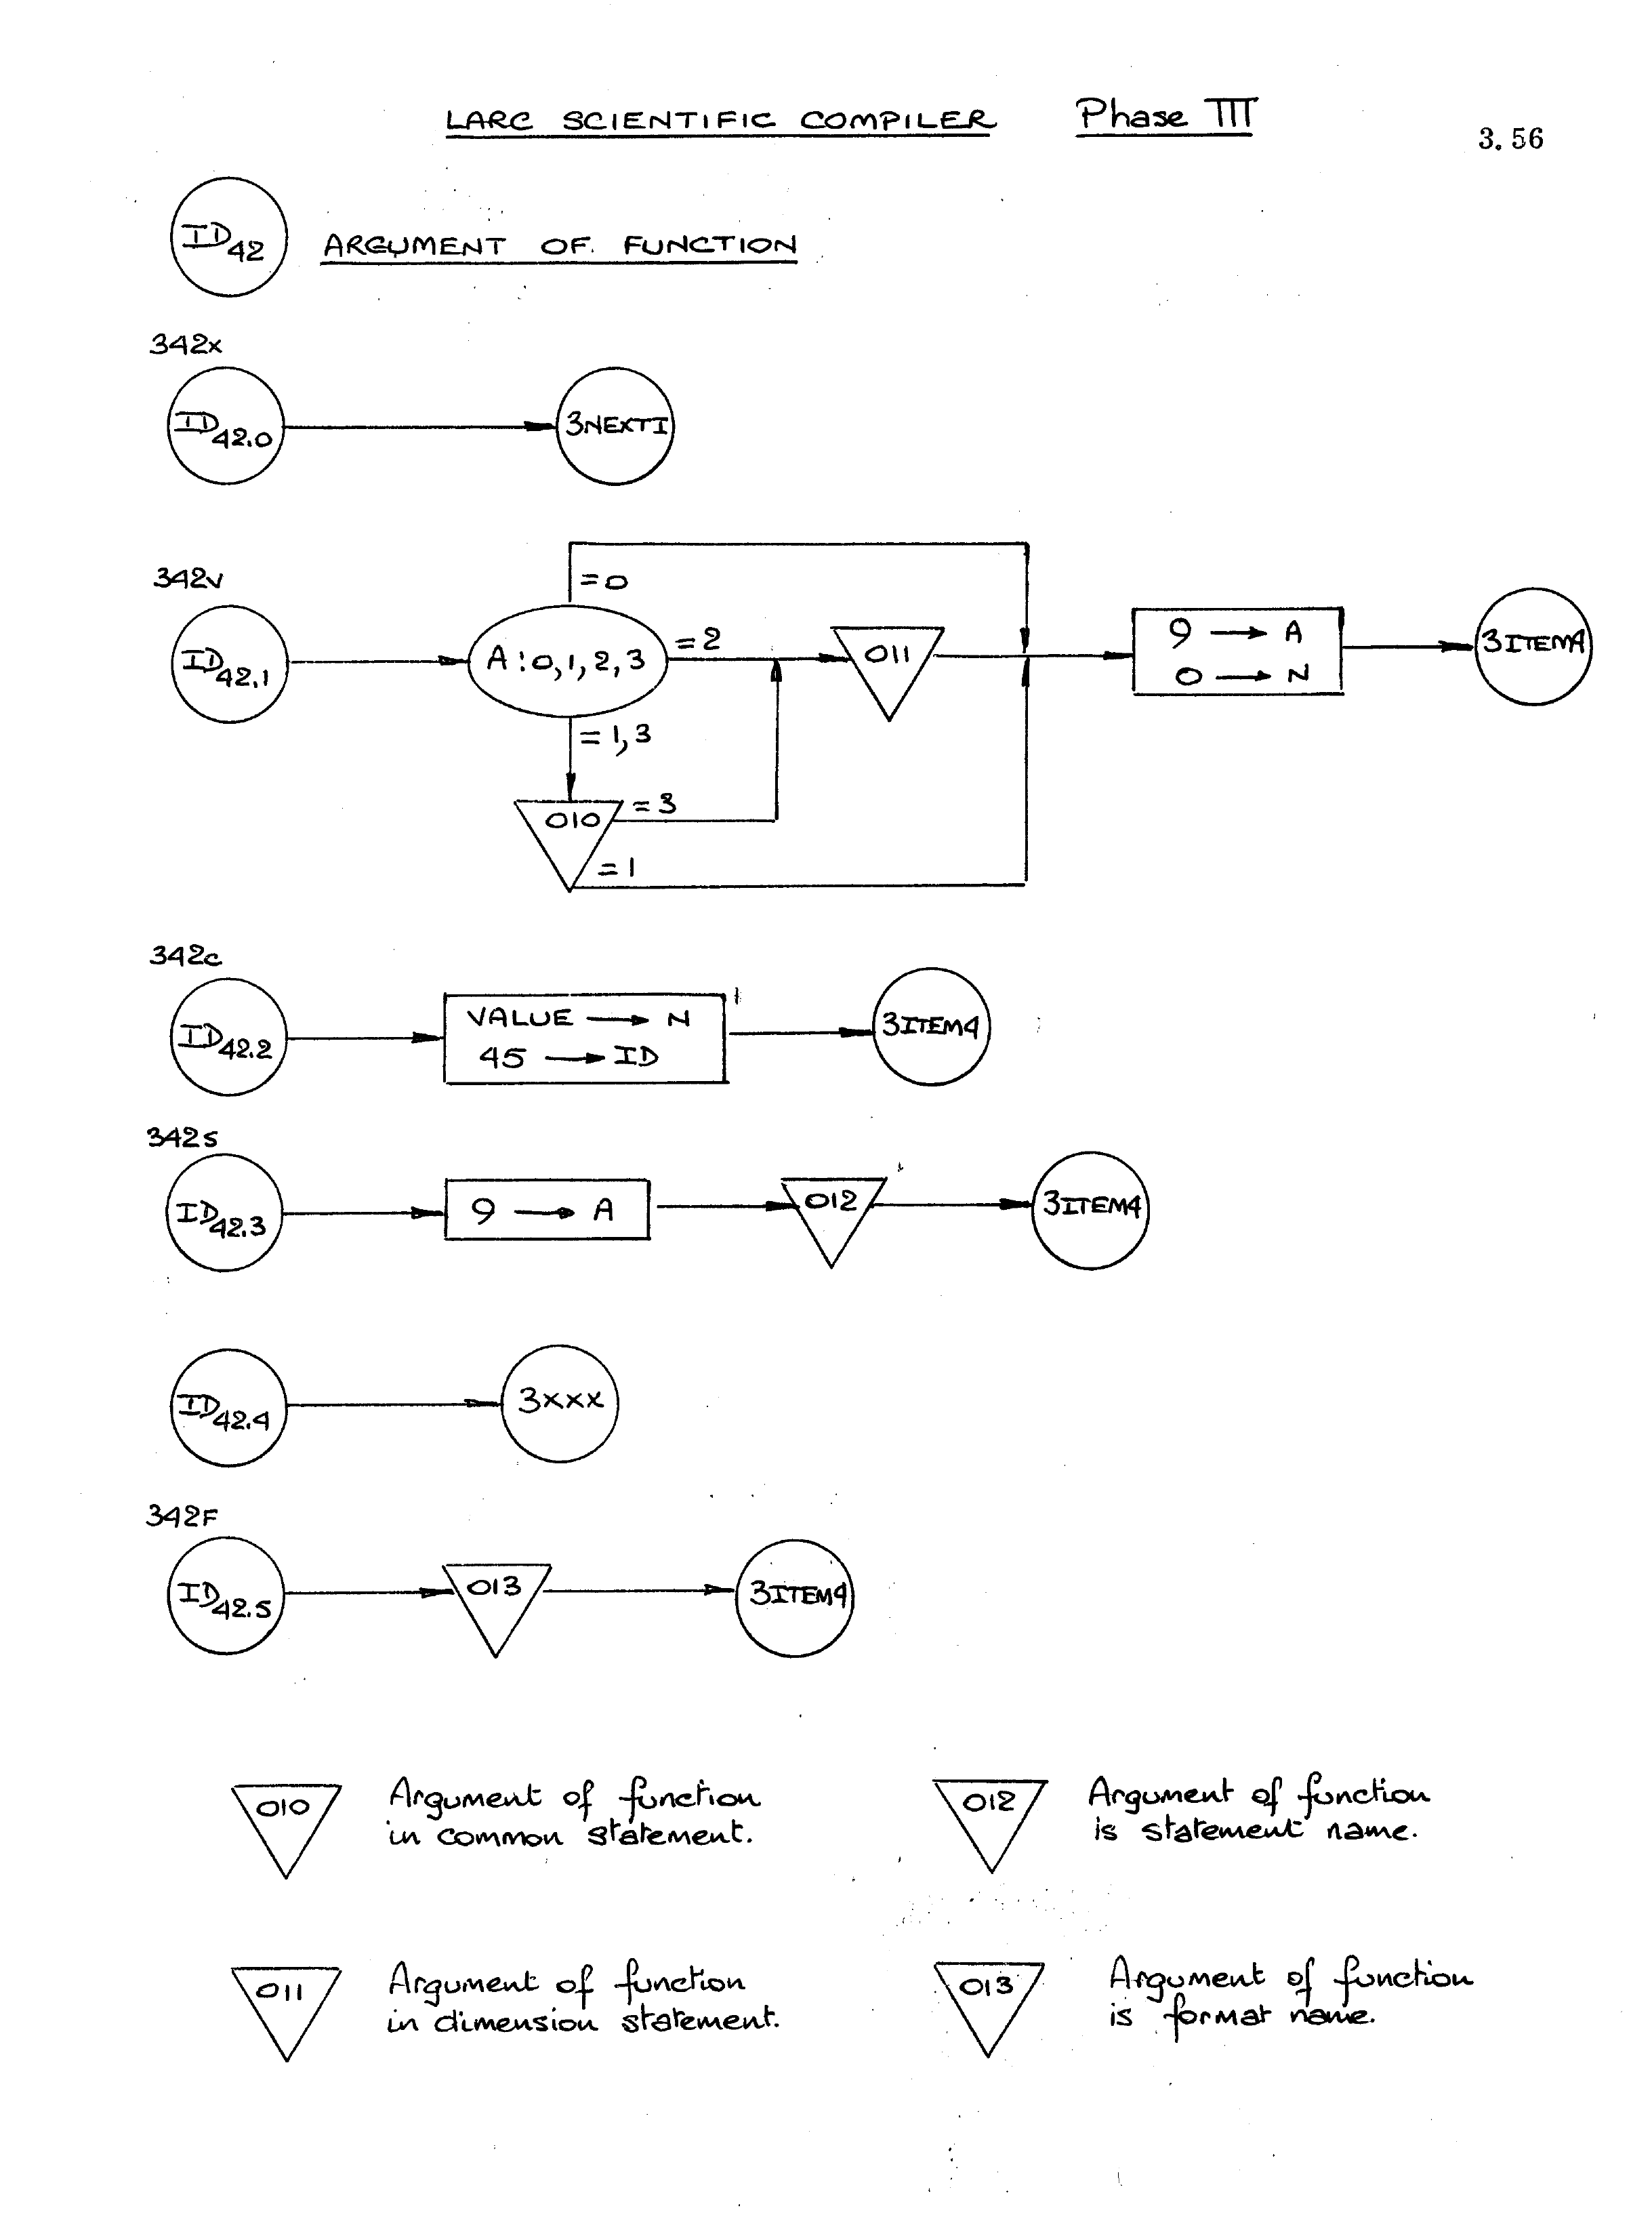 LARC SCIENTIFIC COMPILER Phase III
3.56
ID42 ARGUMENT OF FUNCTION
342x
ID42.0 3NEXTI
342v
=0
ID42.1 A:0,1,2,3 =2 011 9 → A 3ITEM4
0 → N
=1,3
010 =3
=1
342c
ID42.2 VALUE → N 3ITEM4
45 → ID
342s
ID42.3 9 → A 012 3ITEM4
ID42.4 3xxx
342F
ID42.5 013 3ITEM4
010 Argument of function
in common statement.
012 Argument of function
is statement name.
011 Argument of function
in dimension statement.
013 Argument of function
is format name.